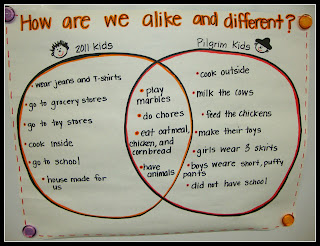 How are we alike and different?
2011 kids
Pilgrim Kids
• wear jeans and T-shirts
• go to grocery stores
• go to toy stores
cook inside
• go to school
• house made for
us
• play
marbles
• do chores
• eat oatmeal,
chicken, and
cornbread
• have
animals
• cook outside
• milk the cows
• feed the chickens
• make their toys
• girls wear 3 skirts
• boys weare short, puffy
pants
• did not have school